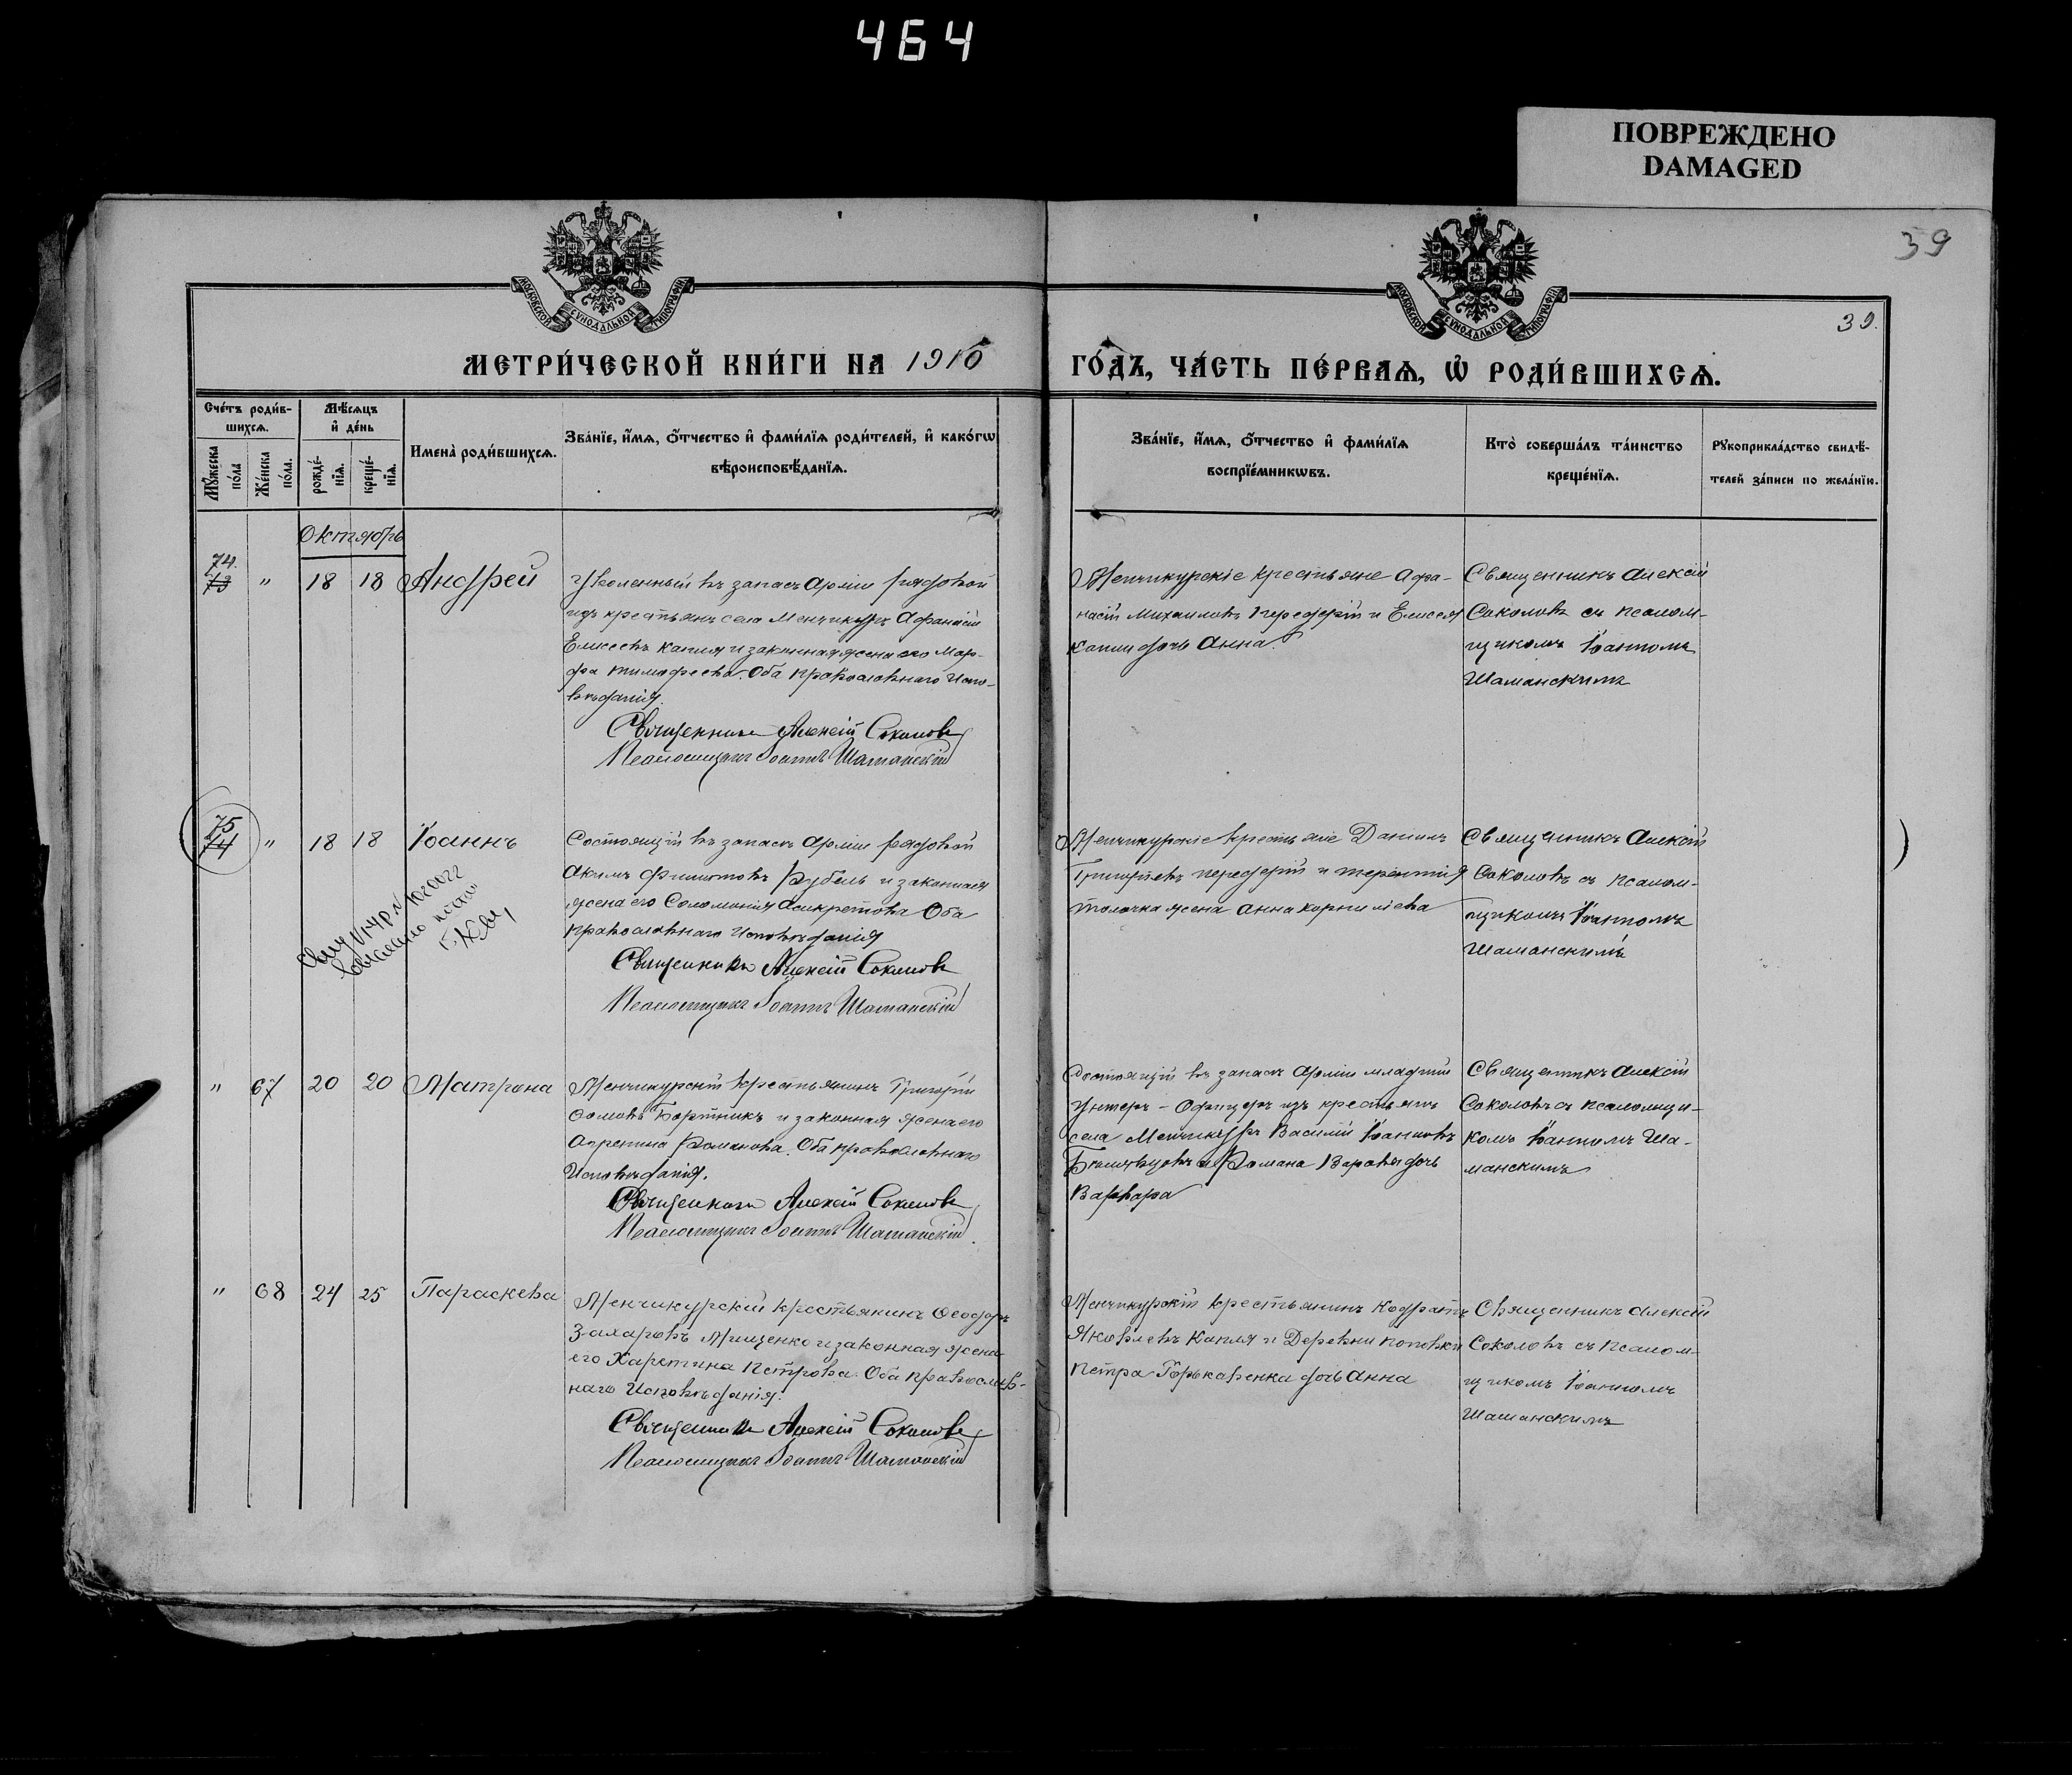 464
ПОВРЕЖДЕНО
DAMAGED
39
МОСКОВСКОЙ СѴНОДАЛЬНОЙ ТИПОГРАФІИ
МОСКОВСКОЙ СѴНОДАЛЬНОЙ ТИПОГРАФІИ
39.
МЕТРИ́ЧЕСКОЙ КНИ́ГИ НА 1910 ГО́ДЪ, ЧА́СТЬ ПЕ́РВАѦ, Ѡ҆ РОДИ́ВШИХСѦ.
Сче́тъ роди́в-
шихсѧ.
Мꙋ́жеска по́ла
Же́нска по́ла.
Мѣ́сѧцъ
и҆ де́нь
рожде́-
нїѧ.
креще́-
нїѧ.
Имена̀ роди́вшихсѧ.
Зва́нїе, и҆́мѧ, ѻ҆́тчество и҆ фами́лїѧ роди́телей, и҆ како́гѡ
вѣроисповѣ́данїѧ.
Зва́нїе, и҆́мѧ, ѻ҆́тчество и҆ фами́лїѧ
воспрїе́мникѡвъ.
Кто̀ соверша́лъ та́инство
креще́нїѧ.
Рꙋкоприкла́дство свидѣ́-
телей за́писи по жела́нїю.
Октябрь
74.
73 " 18 18 Андрей
Уволенный въ запасъ Арміи рядовой
изъ крестьянъ села Менчикуръ Афанасій
Елисеевъ Капля и законная жена его Мар-
фа Тимофеева. Оба православнаго Испо-
вѣданія.
Священникъ Алексій Соколовъ
Псаломщикъ Іоаннъ Шаманскій
Менчикурскіе крестьяне Афа-
насій Михаиловъ Передерій и Елисея
Капли дочь Анна.
Священникъ Алексій
Соколовъ съ псалом-
щикомъ Іоанномъ
Шаманскимъ
75
74 " 18 18 Іоаннъ
Состоящій въ запасѣ Арміи рядовой
Акимъ Филиповъ Рубель и законная
жена его Соломонія Асикретова Оба
православнаго Исповѣданія
Священникъ Алексій Соколовъ
Псаломщикъ Іоаннъ Шаманскій
Менчикурскіе крестьяне Даніилъ
Григорьевъ Передерій и Терентія
Толочка жена Анна Корнилієва
Священникъ Алексій
Соколовъ съ псалом-
щикомъ Іоанномъ
Шаманскимъ
" 67 20 20 Матрона
Менчикурскій крестьянинъ Григорій
Фомовъ Бортникъ и законная жена его
Агрепина Романова. Оба православнаго
Исповѣданія.
Священникъ Алексій Соколовъ
Псаломщикъ Іоаннъ Шаманскій.
Состоящій въ запасѣ Арміи младшій
Унтеръ-Офицеръ изъ крестьянъ
села Менчикуръ Василій Іоанновъ
и Романа Варавы дочь
Варвара
Священникъ Алексій
Соколовъ съ псаломщи-
комъ Іоанномъ Ша-
манскимъ
" 68 24 25 Параскева
Менчикурскій крестьянинъ Феодоръ
Захаровъ Мищенко и законная жена
его Харитина Петрова. Оба православ-
наго Исповѣданія.
Священникъ Алексій Соколовъ
Псаломщикъ Іоаннъ Шаманскій
Менчикурскій крестьянинъ Кодратъ
Яковлевъ Капля и Деревни Поповки
Петра Горькавенка дочь Анна
Священникъ Алексій
Соколовъ съ псалом-
щикомъ Іоанномъ
Шаманскимъ